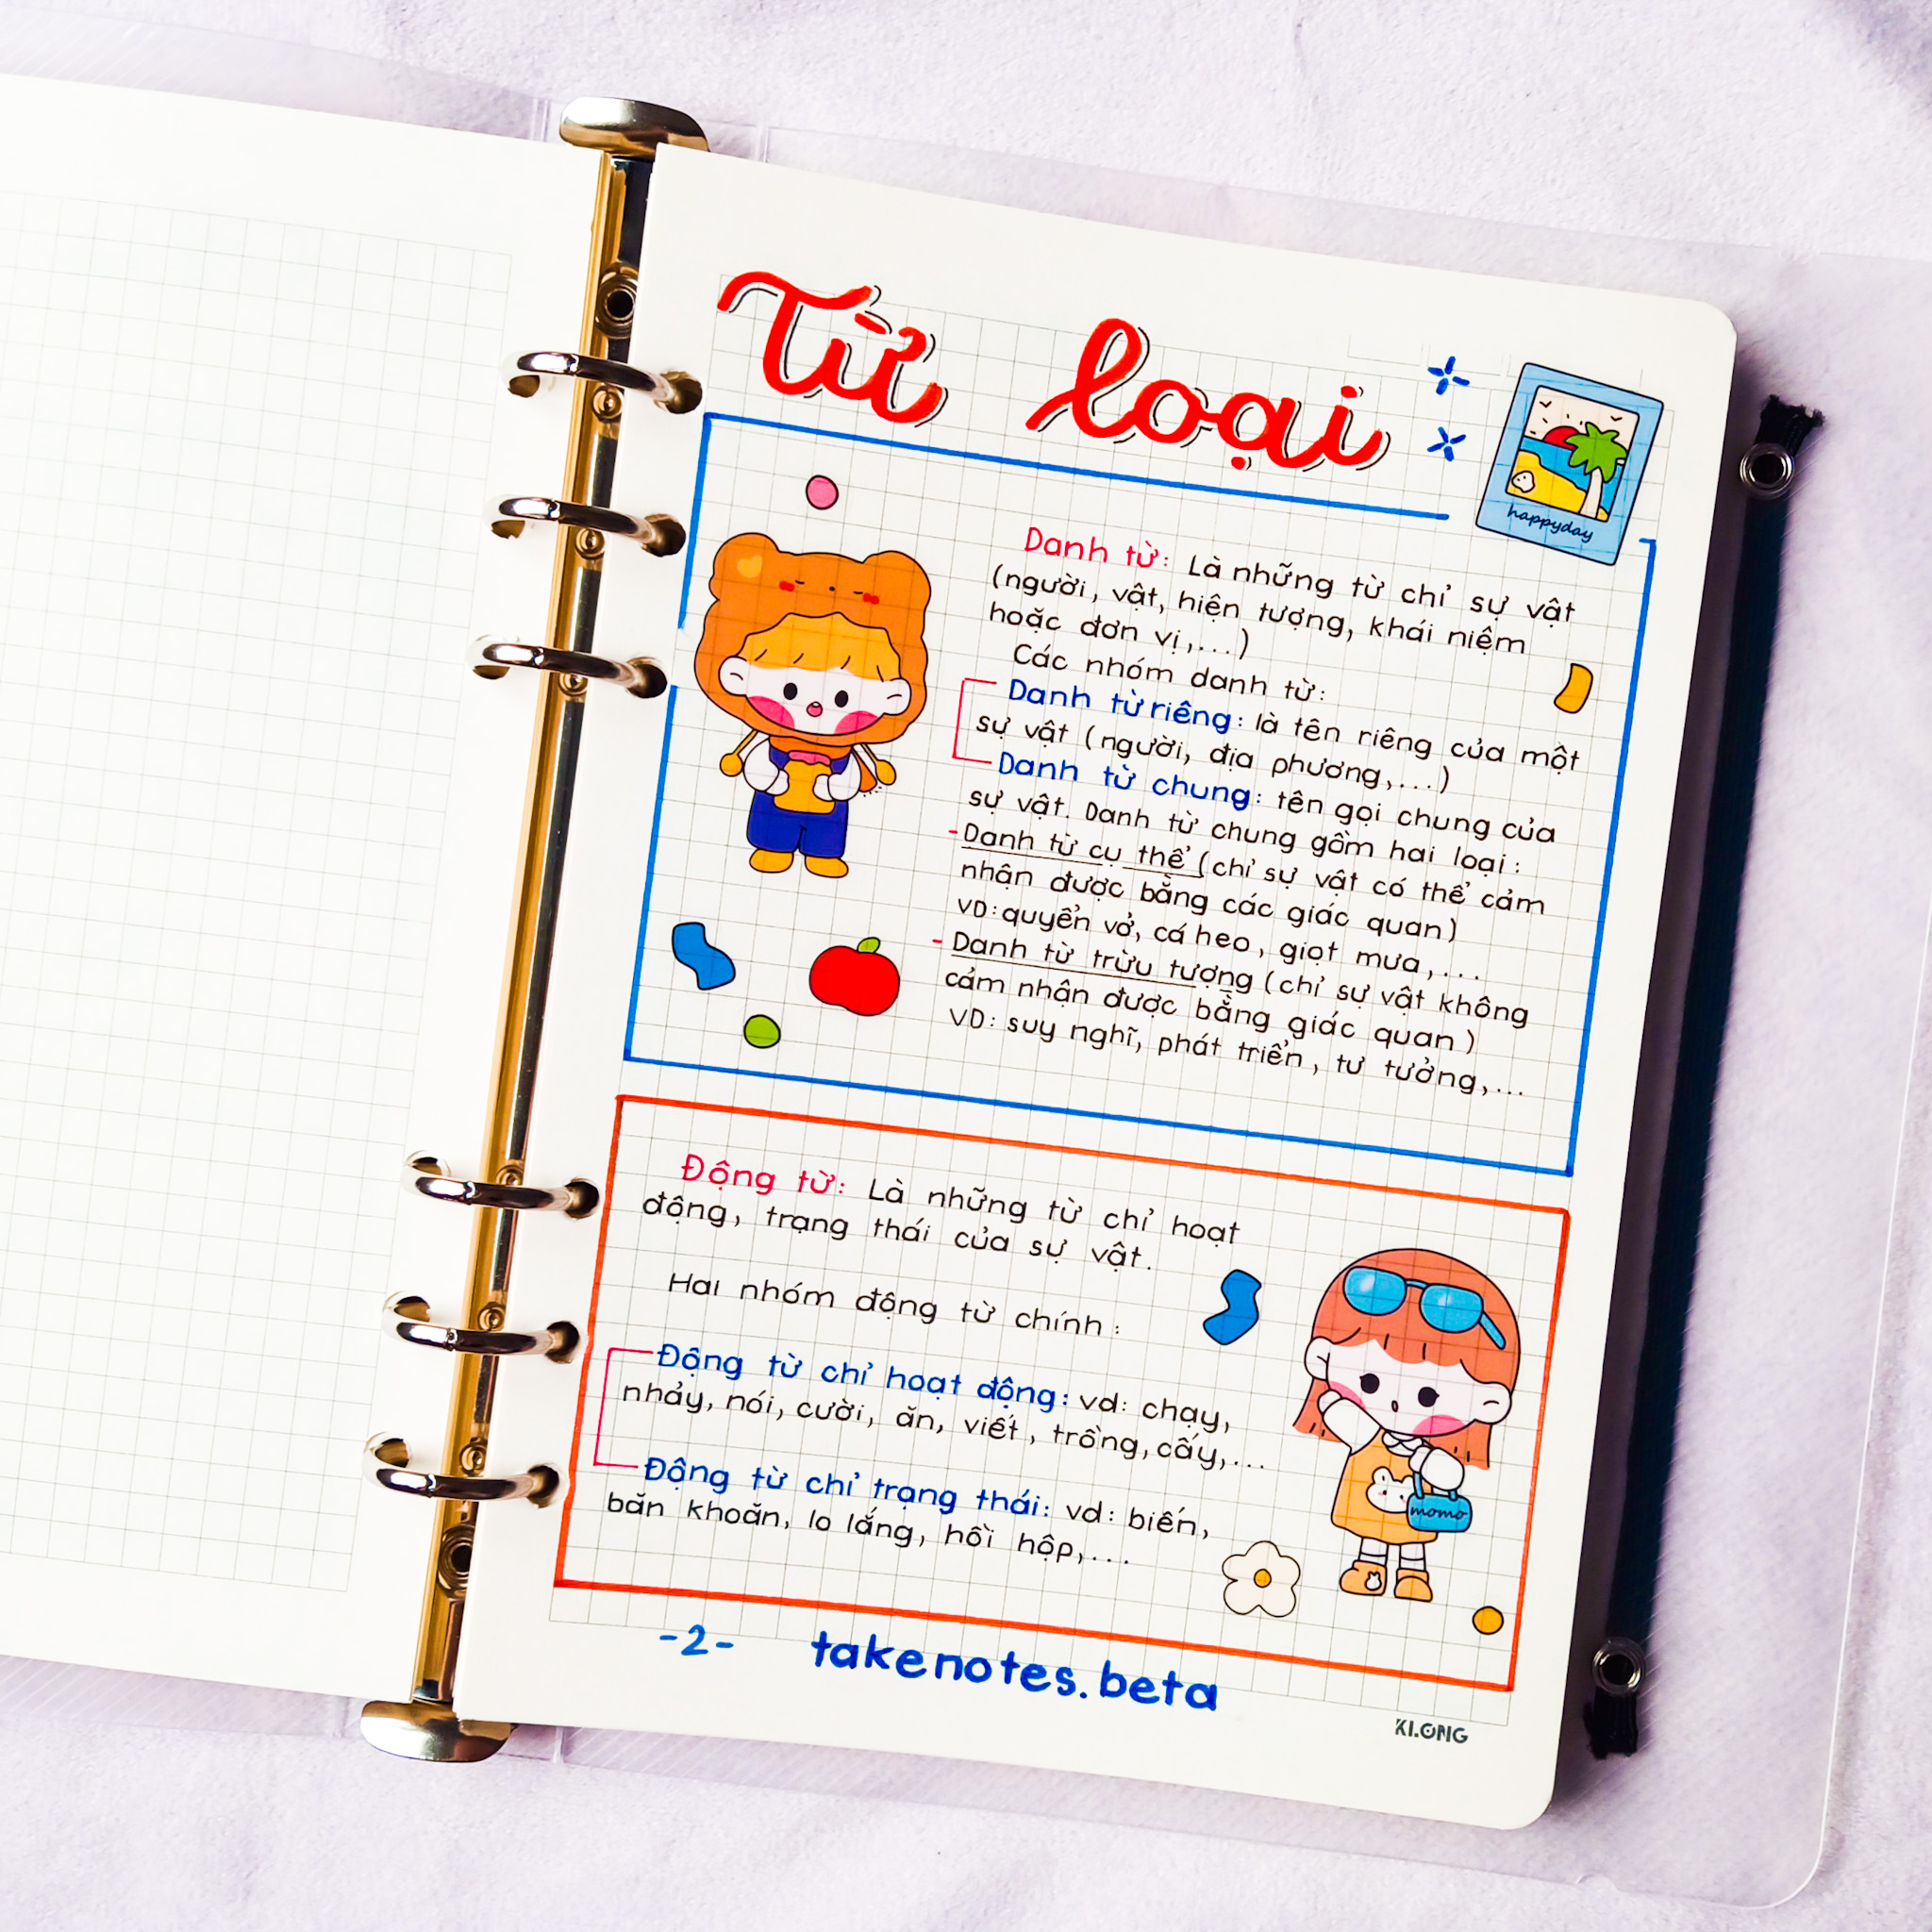 Từ loại
happyday
Danh từ: Là những từ chỉ sự vật
(người, vật, hiện tượng, khái niệm
hoặc đơn vị,...)
Các nhóm danh từ:
Danh từ riêng: là tên riêng của một
sự vật (người, địa phương,...)
Danh từ chung: tên gọi chung của
sự vật. Danh từ chung gồm hai loại:
- Danh từ cụ thể (chỉ sự vật có thể cảm
nhận được bằng các giác quan)
VD: quyển vở, cá heo, giọt mưa,...
- Danh từ trừu tượng (chỉ sự vật không
cảm nhận được bằng giác quan)
VD: suy nghĩ, phát triển, tư tưởng,...
Động từ: Là những từ chỉ hoạt
động, trạng thái của sự vật.
Hai nhóm động từ chính:
Động từ chỉ hoạt động: vd: chạy,
nhảy, nói, cười, ăn, viết, trồng, cấy,...
Động từ chỉ trạng thái: vd: biến,
băn khoăn, lo lắng, hồi hộp,...
momo
-2- takenotes.beta
KI.ONG